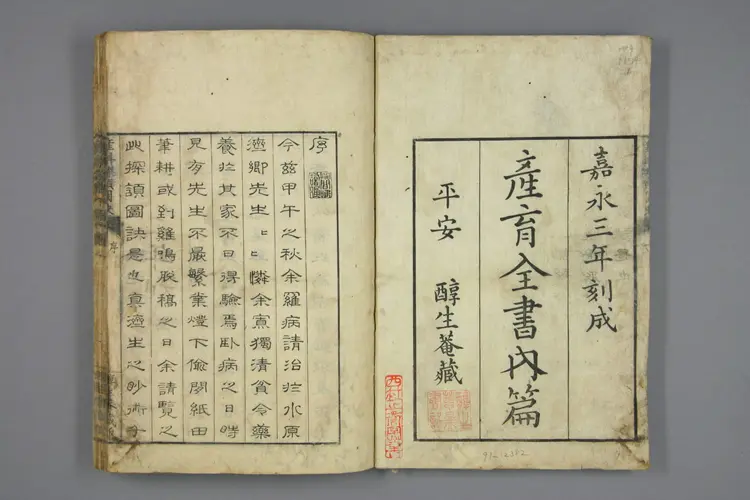 嘉永三年刻成
產育全書內篇
平安 醇生菴藏
序
今茲甲午之秋余罹病請治於水原
濟卿先生〻〻憐余寡獨清貧令藥
養於其家不日得驗焉臥病之日時
見夕先生不厭繁業燈下偸閑紙田
筆耕或到雞鳴脫稿之日余請覽之
此探頷圖訣是也真濟生之妙術予
序